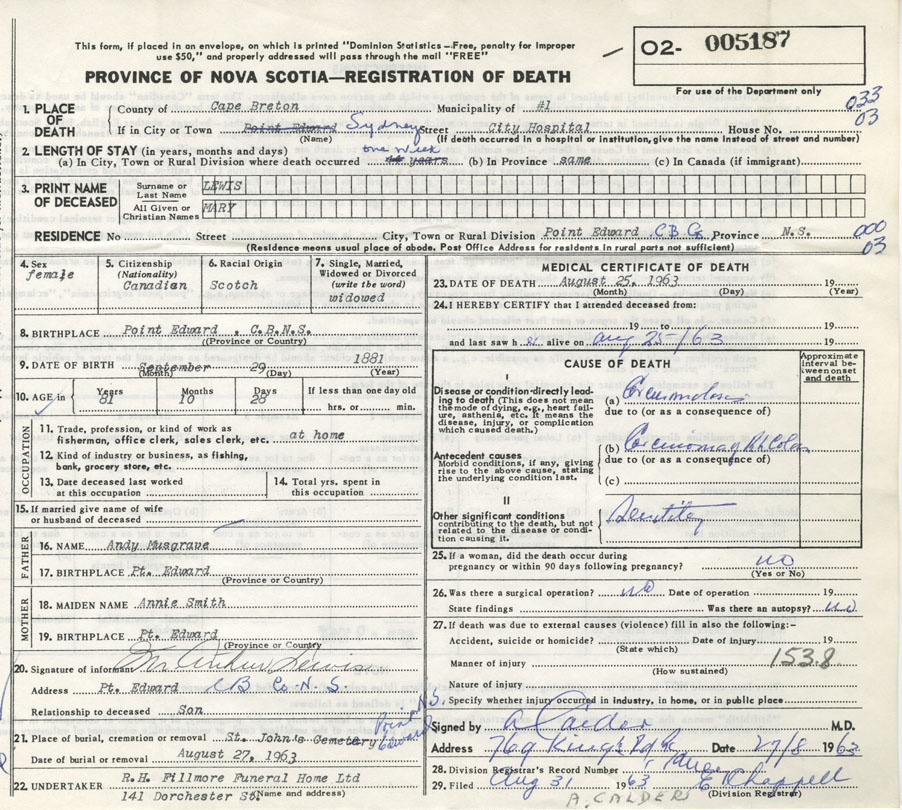 This form, if placed in an envelope, on which is printed "Dominion Statistics—Free, penalty for improper
use $50," and properly addressed will pass through the mail "FREE"
O2- 005187
PROVINCE OF NOVA SCOTIA—REGISTRATION OF DEATH
For use of the Department only
1. PLACE OF DEATH County of Cape Breton Municipality of #1 033
If in City or Town Point Edward Sydney Street City Hospital House No. 03
(Name) (If death occurred in a hospital or institution, give the name instead of street and number)
2. LENGTH OF STAY (in years, months and days) one week
(a) In City, Town or Rural Division where death occurred years (b) In Province same (c) In Canada (if immigrant)
3. PRINT NAME OF DECEASED Surname or Last Name LEWIS
All Given or Christian Names MARY
RESIDENCE No Street City, Town or Rural Division Point Edward C.B. Co. Province N.S. 000
(Residence means usual place of abode. Post Office Address for residents in rural parts not sufficient) 03
4. Sex female
5. Citizenship (Nationality) Canadian
6. Racial Origin Scotch
7. Single, Married, Widowed or Divorced (write the word) widowed
8. BIRTHPLACE Point Edward, C.B.N.S.
(Province or Country)
9. DATE OF BIRTH September 29 1881
(Month) (Day) (Year)
10. AGE in Years 81 Months 10 Days 28 If less than one day old
hrs. or min.
OCCUPATION
11. Trade, profession, or kind of work as
fisherman, office clerk, sales clerk, etc. at home
12. Kind of industry or business, as fishing,
bank, grocery store, etc.
13. Date deceased last worked
at this occupation
14. Total yrs. spent in
this occupation
15. If married give name of wife
or husband of deceased
FATHER
16. NAME Andy Musgrave
17. BIRTHPLACE Pt. Edward
(Province or Country)
MOTHER
18. MAIDEN NAME Annie Smith
19. BIRTHPLACE Pt. Edward
(Province or Country)
20. Signature of informant Mr Arthur Lewis
Address Pt. Edward C B Co. N. S.
Relationship to deceased Son
21. Place of burial, cremation or removal St. John's Cemetery Point Edward N.S.
Date of burial or removal August 27, 1963
22. UNDERTAKER R.H. Fillmore Funeral Home Ltd
141 Dorchester St. (Name and address)
MEDICAL CERTIFICATE OF DEATH
23. DATE OF DEATH August 25, 1963 19
(Month) (Day) (Year)
24. I HEREBY CERTIFY that I attended deceased from:
19 to 19
and last saw h er alive on Aug 25/63 19
CAUSE OF DEATH
Approximate interval between onset and death
I
Disease or condition directly leading
to death (This does not mean
the mode of dying, e.g., heart failure,
asthenia, etc. It means the
disease, injury, or complication
which caused death.)
(a)
due to (or as a consequence of)
Antecedent causes
Morbid conditions, if any, giving
rise to the above cause, stating
the underlying condition last.
(b) Carcinoma Colon
due to (or as a consequence of)
(c)
II
Other significant conditions
contributing to the death, but not
related to the disease or condition
causing it.
Senility
25. If a woman, did the death occur during
pregnancy or within 90 days following pregnancy? no
(Yes or No)
26. Was there a surgical operation? no Date of operation 19
State findings Was there an autopsy? no
27. If death was due to external causes (violence) fill in also the following:-
Accident, suicide or homicide? Date of injury 19
(State which)
Manner of injury 153.8
(How sustained)
Nature of injury
Specify whether injury occurred in industry, in home, or in public place
Signed by A Calder M.D.
Address 769 Kings Rd Date 27/8 1963
28. Division Registrar's Record Number
29. Filed Aug 31 1963 E Chappell
(Division Registrar)
A. CALDER